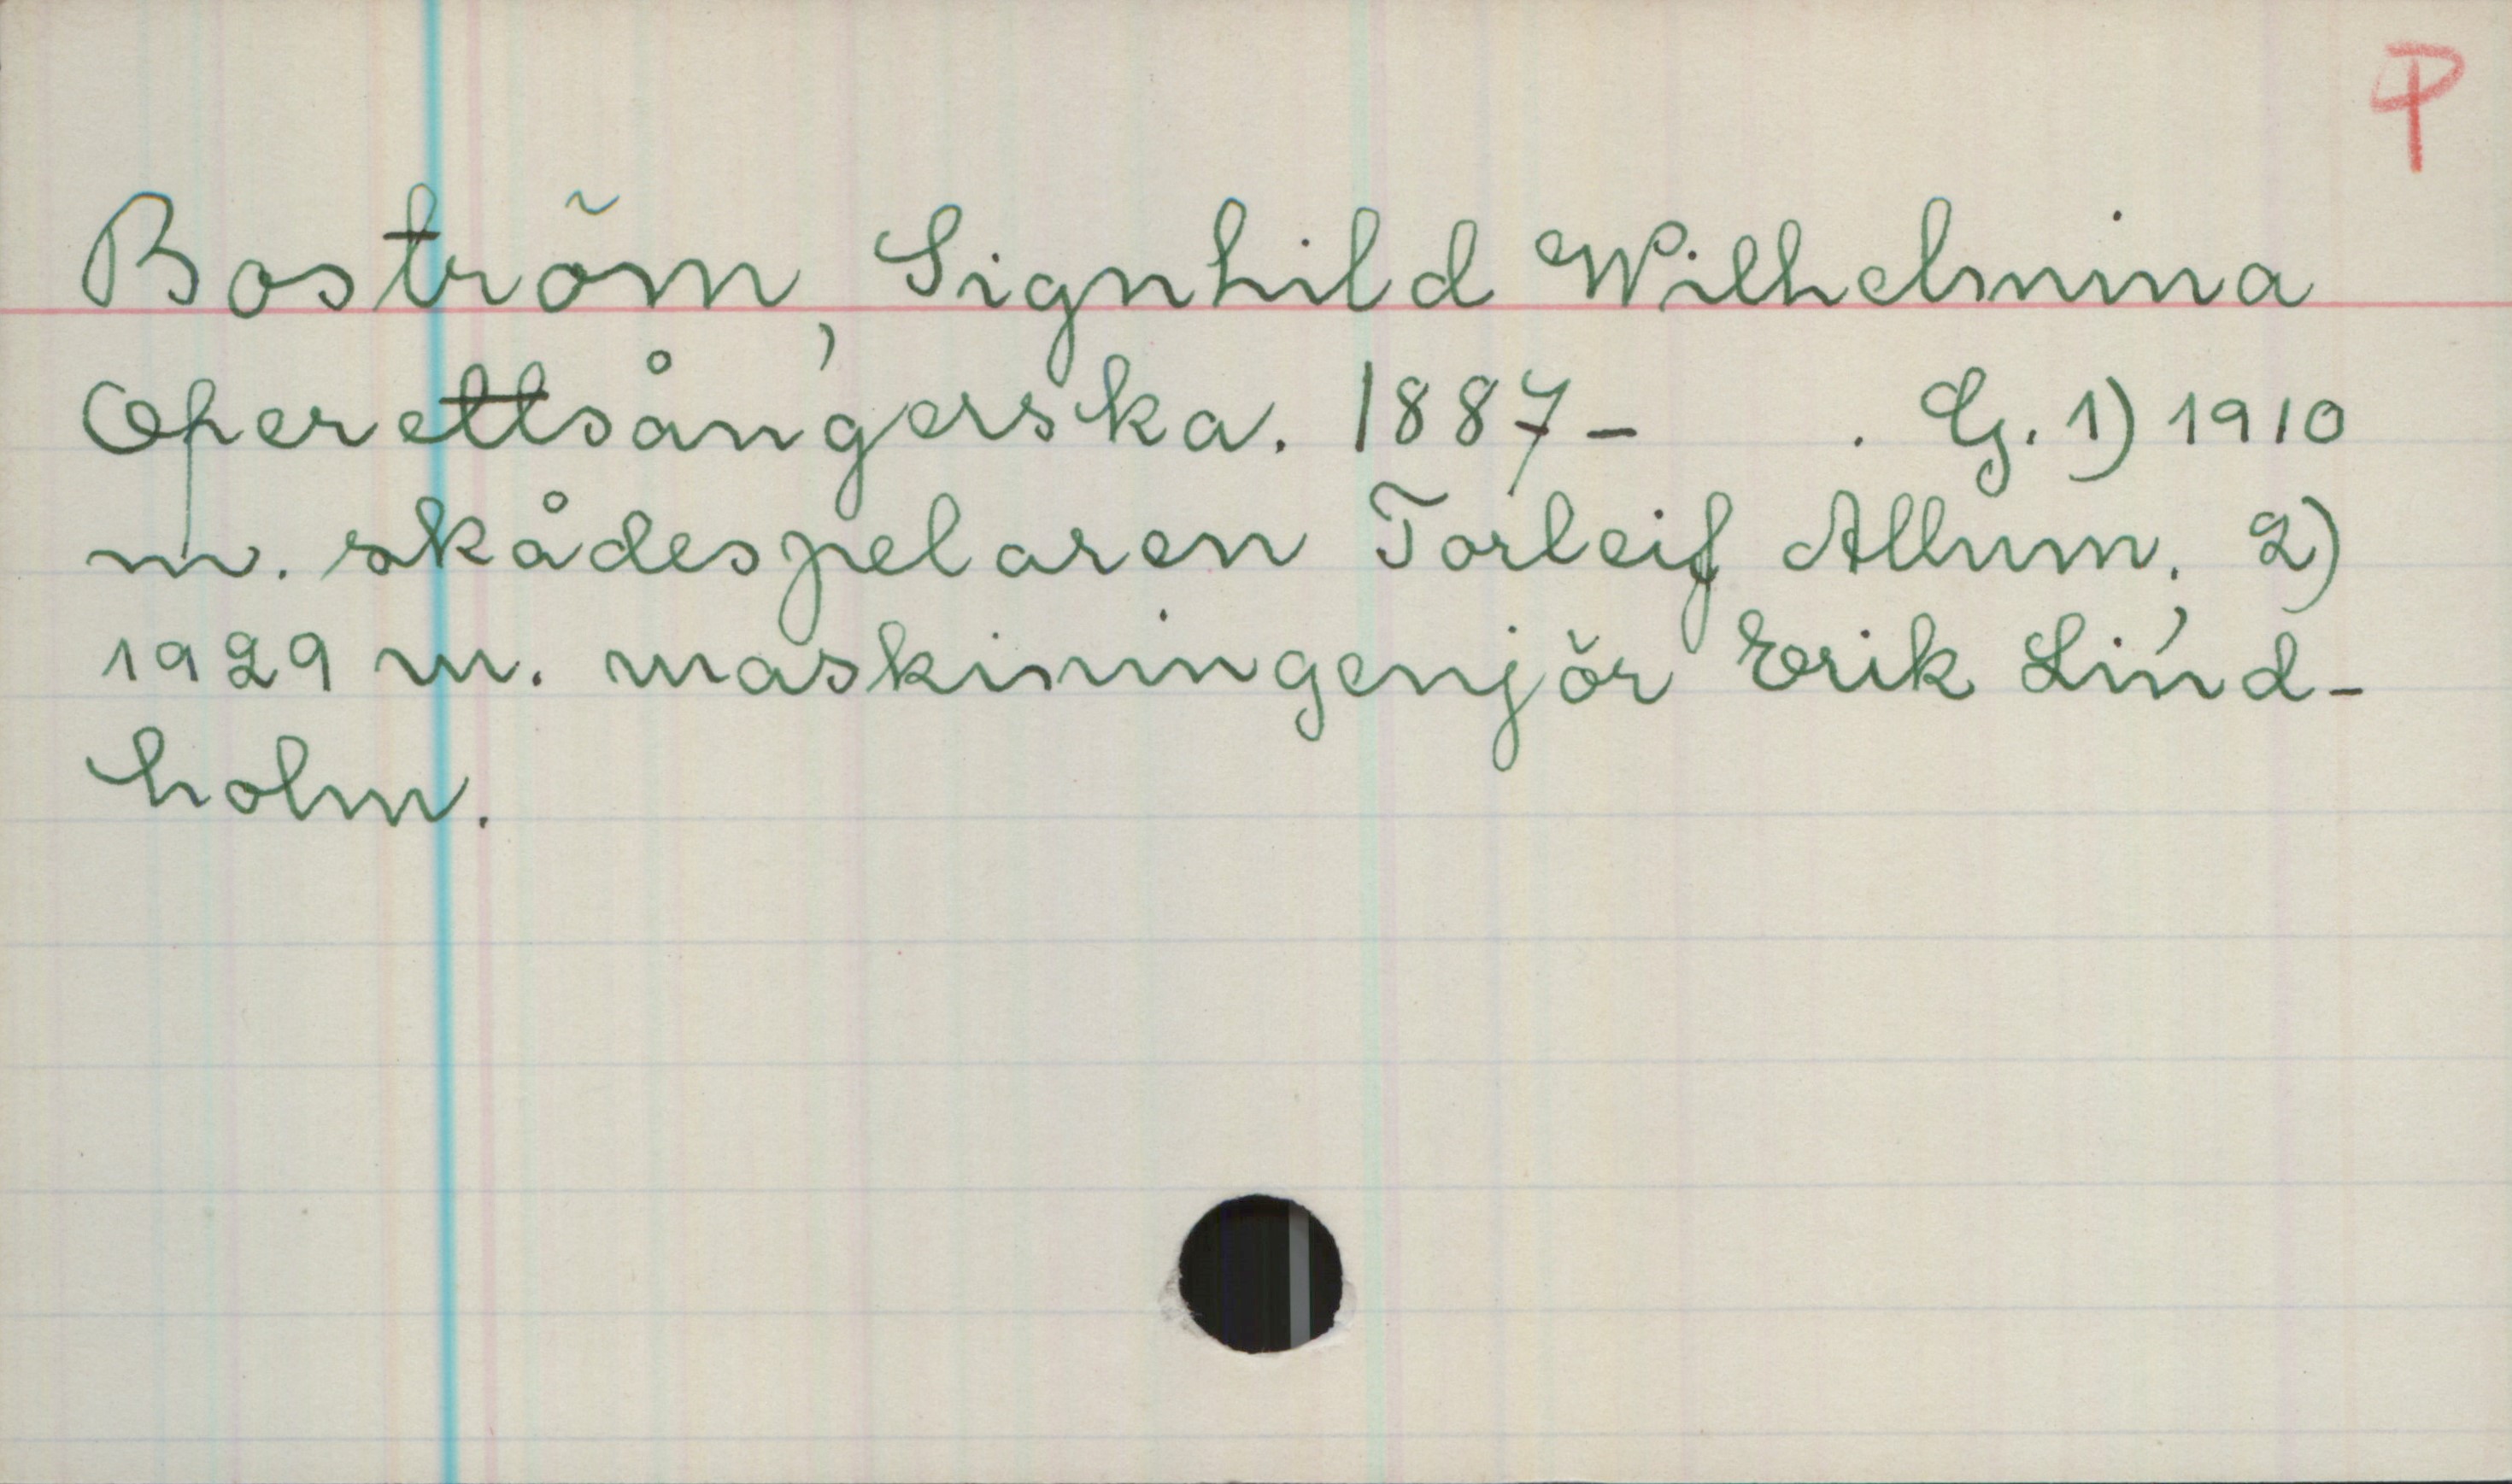 P
Boström, Signhild Wilhelmina
Operettsångerska. 1887-      . G. 1) 1910
m. skådespelaren Torleif Allum, 2)
1929 m. maskiningenjör Erik Lind-
holm.